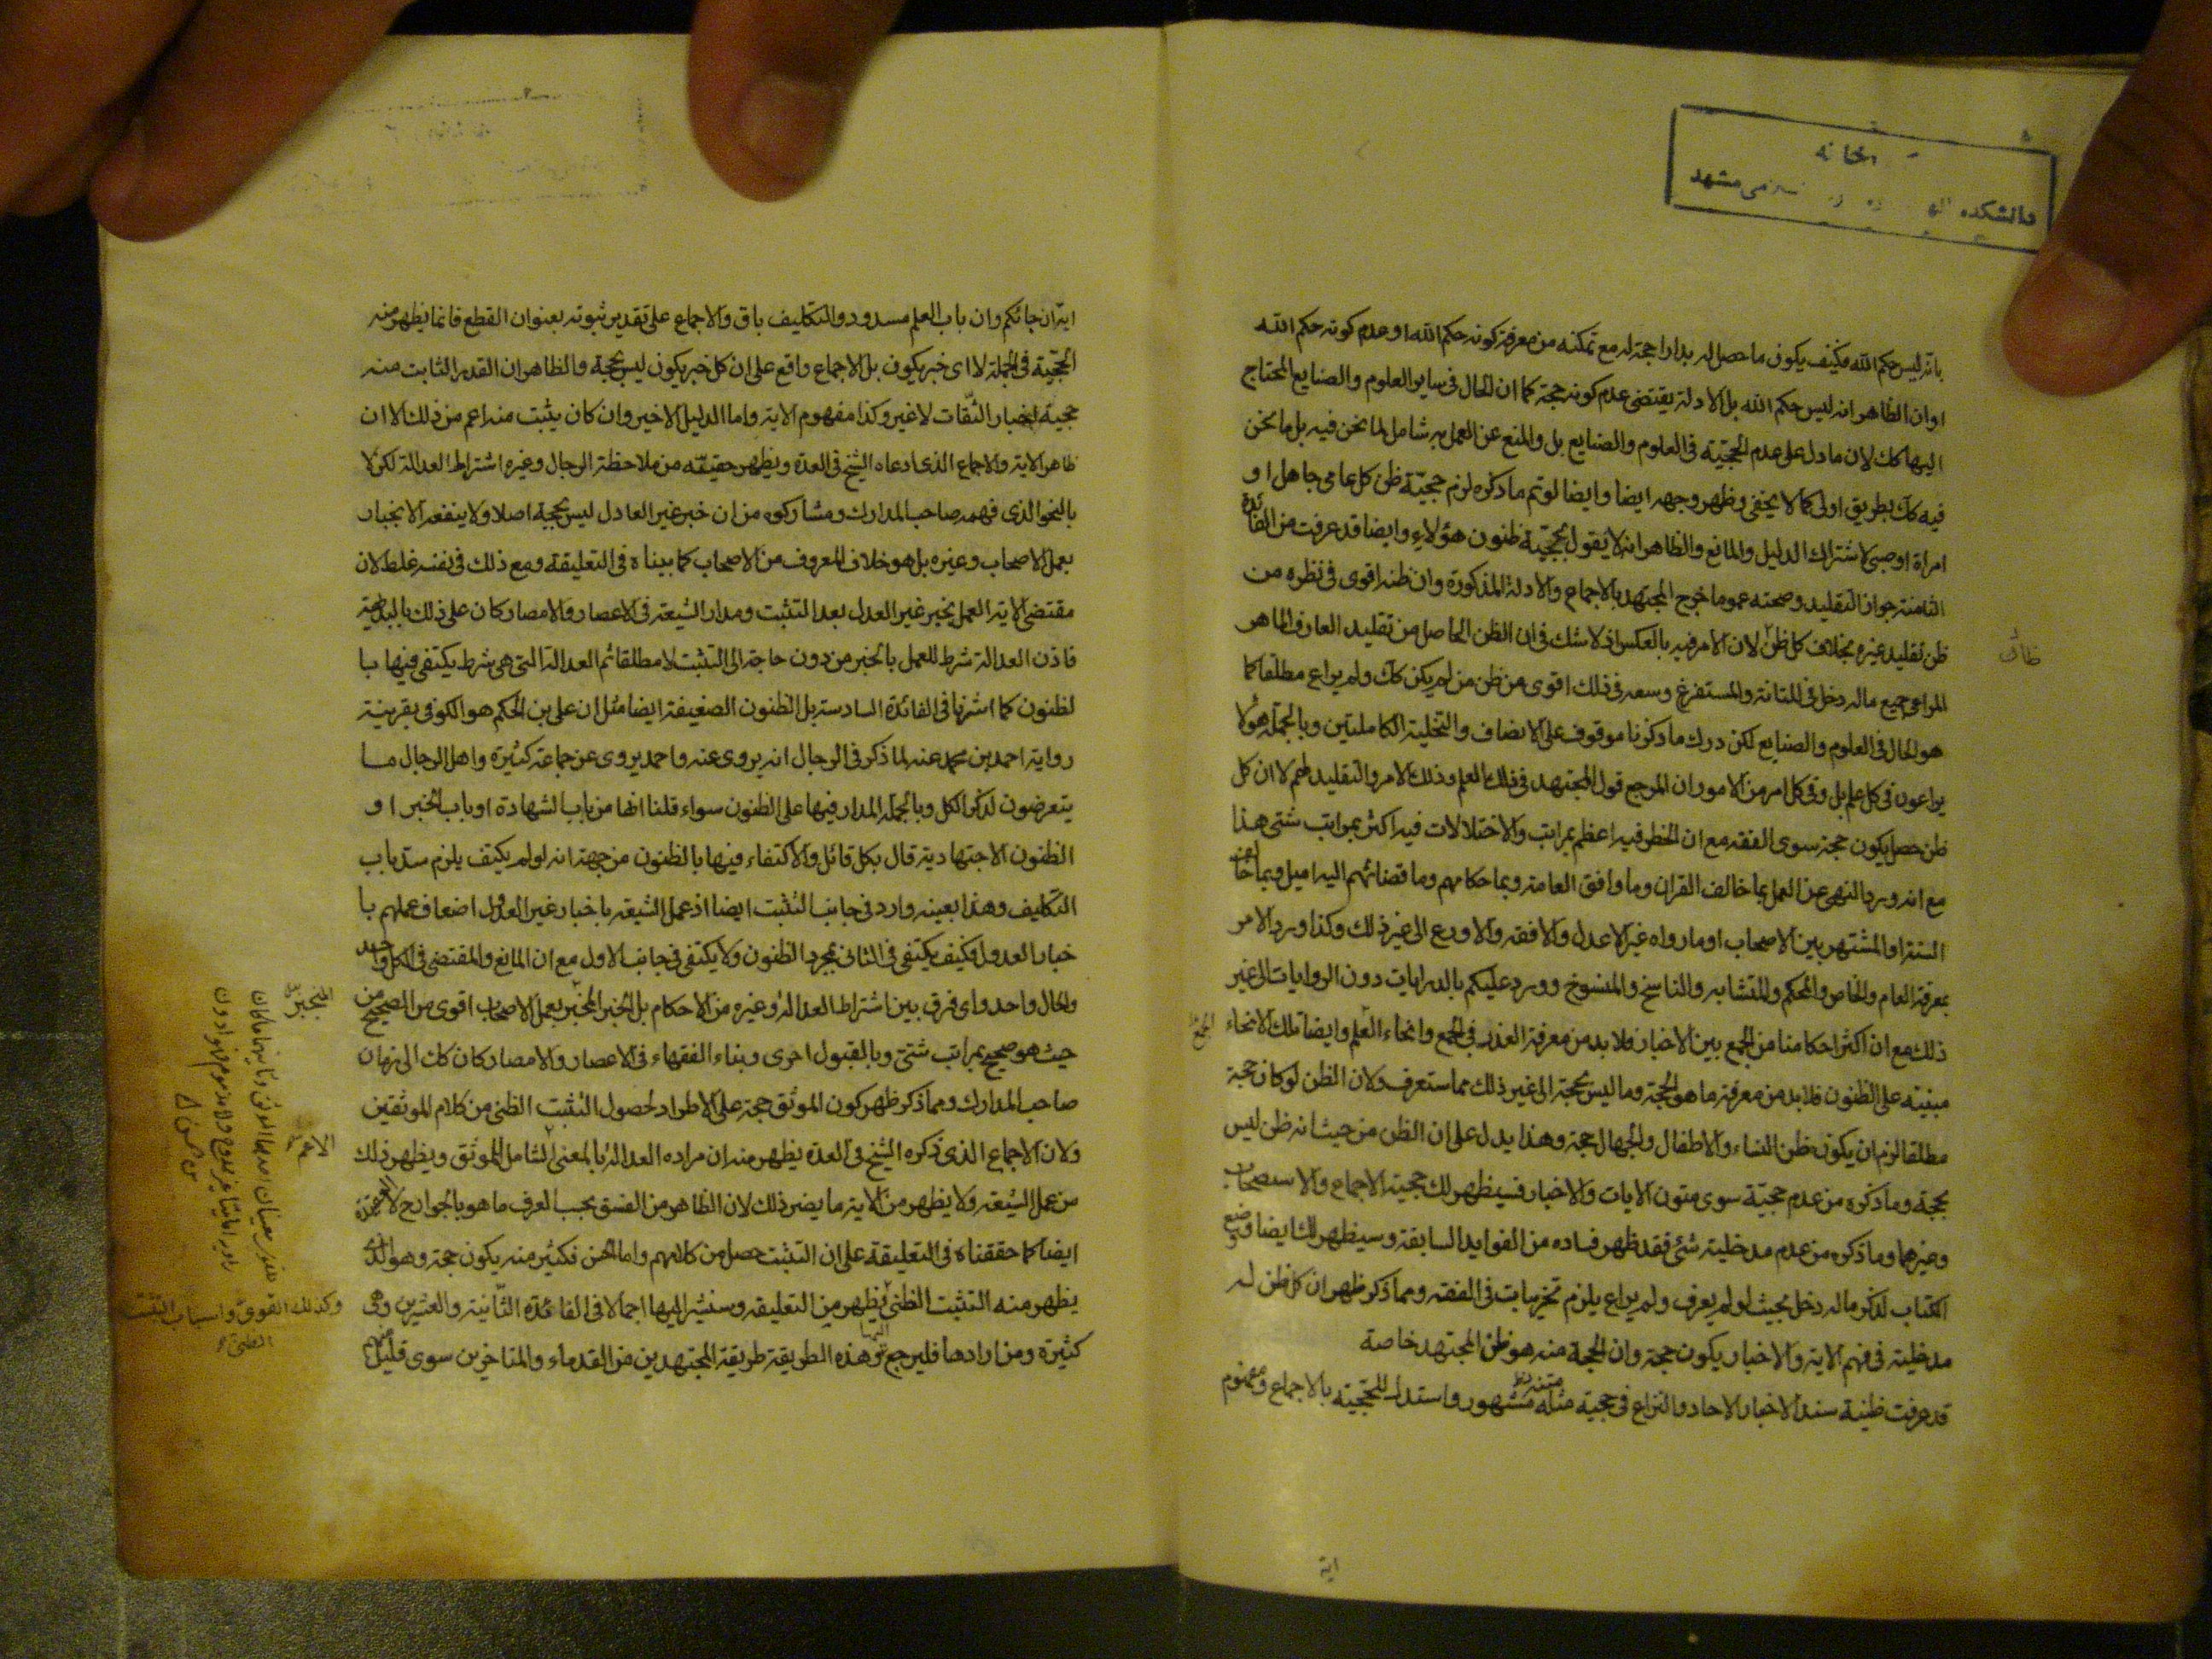 بانه ليس حكم الله فكيف يكون ما حصل له بدارا حجة له مع تمكنه من معرفة كونه حكم الله او عدم كونه حكم الله
او ان الظاهر انه ليس حكم الله بل الادلة يقتضى عدم كونه حجة كما ان الحال فى ساير العلوم والصنايع المحتاج
اليها كك لان ما دل على عدم الحجية فى العلوم والصنايع بل والمنع عن العمل به شامل لما نحن فيه بل ما نحن
فيه كك بطريق اولى كما لا يخفى وظهر وجهه ايضا وايضا لو تم ما ذكره لزم حجيّة ظن كل عامى جاهل او
امراة او صبى لاشتراك الدليل والمانع والظاهر انه لا يقول بحجيّة ظنون هؤلاء وايضا قد عرفت من الفائدة
الثامنة جواز التقليد وصحته عموما خرج المجتهد بالاجماع والادلة المذكورة وان ظنه اقوى فى نظره من
ظن تقليد غيره بخلاف كل ظن لان الامر فيه بالعكس اذ لا شك فى ان الظن الحاصل من تقليد العارف الماهر
المراعى جميع ماله دخل فى المتانة والمستفرغ وسعه فى ذلك اقوى من ظن من لم يكن كك ولم يراع مطلقا كما
هو الحال فى العلوم والصنايع لكن درك ما ذكرنا موقوف على الانصاف والتخلية الكاملتين وبالجملة هؤلا
يراعون فى كل علم بل وفى كل امر من الامور ان المرجع قول المجتهد فى ذلك العلم وذلك الامر والتقليد لهم لا ان كل
ظن حصل يكون حجة سوى الفقه مع ان الخطر فيه اعظم بمراتب والاختلالات فيه اكثر بمراتب شتى هذا
مع انه ورد النهى عن العمل بما خالف القران وما وافق العامة وبما حكامهم وما قضائهم اليه اميل وبما خالف
السنة او المشتهر بين الاصحاب او ما رواه غير الاعدل والافقه والاورع الى غير ذلك وكذا ورد الامر
بمعرفة العام والخاص والمحكم والمتشابه والناسخ والمنسوخ وورد عليكم بالدرايات دون الروايات الى غير
ذلك مع ان اكثر احكامنا من الجمع بين الاخبار فلابد من معرفة العذر فى الجمع وانحاء العلم وايضا تلك الانحاء
مبنية على الظنون فلابد من معرفة ما هو الحجة وما ليس بحجة الى غير ذلك مما ستعرف ولان الظن لو كان حجة
مطلقا لزم ان يكون ظن النساء والاطفال والجهال حجة وهذا يدل على ان الظن من حيث انه ظن ليس
بحجة وما ذكره من عدم حجيّة سوى متون الايات والاخبار فسيظهر لك حجية الاجماع والاستصحاب
وغيرهما وما ذكره من عدم مدخلية شئ فقد ظهر فساده من الفوايد السابقة وسيظهر لك ايضا وضع
الكتاب لذكر ماله دخل بحيث لو لم يعرف ولم يراع يلزم تخريبات فى الفقه ومما ذكر ظهر ان كل ظن له
مدخلية فى فهم الاية والاخبار يكون حجة وان الحجة منه هو ظن المجتهد خاصة
قد عرفت ظنية سند الاخبار الاحاد والنزاع فى حجية مثله مشهور واستدل للحجية بالاجماع ومفهوم
اية
اية ان جائكم وان باب العلم مسدود والتكاليف باق والاجماع على تقدير ثبوته بعنوان القطع فانما يظهر منه
الحجيّة فى الجملة لا اى خبر يكون بل الاجماع واقع على ان كل خبر يكون ليس بحجة والظاهر ان القدر الثابت منه
حجية اخبار الثقات لا غير وكذا مفهوم الاية واما الدليل الاخير وان كان يثبت منه اعم من ذلك الا ان
ظاهر الاية والاجماع الذى ادعاه الشيخ فى العدة ويظهر حقيقته من ملاحظة الرجال وغيره اشتراط العدالة لكن لا
بالنحو الذى فهمه صاحب المدارك ومشاركوه من ان خبر غير العادل ليس بحجة اصلا ولا ينفعه الانجبار
بعمل الاصحاب وغيره بل هو خلاف المعروف من الاصحاب كما بيناه فى التعليقة ومع ذلك فى نفسه غلط لان
مقتضى الاية العمل بخبر غير العدل بعد التثبت ومدار الشيعة فى الاعصار والامصار كان على ذلك بالبديهة
فاذن العدالة شرط للعمل بالخبر من دون حاجة الى التثبت لا مطلقا ثم العدالة التى هى شرط يكتفى فيها با
لظنون كما اشرنا فى الفائدة السادسة بل الظنون الضعيفة ايضا مثل ان على بن الحكم هو الكوفى بقرينة
رواية احمد بن محمد عنه لما ذكر فى الرجال انه يروى عنه واحمد يروى عن جماعة كثيرة واهل الرجال ما
يتعرضون لذكر الكل وبالجملة المدار فيها على الظنون سواء قلنا انها من باب الشهادة او باب الخبر او
الظنون الاجتهادية قال بكل قائل والاكتفاء فيها بالظنون من جهة انه لو لم يكتف يلزم سد باب
التكاليف وهذا بعينه وارد فى جانب التثبت ايضا اذ عمل الشيعة باخبار غير العدول اضعاف عملهم با
خبار العدول فكيف يكتفى فى الثانى بمجرد الظنون ولا يكتفى فى جانب الاول مع ان المانع والمقتضى فى الكل واحد
والحال واحد واى فرق بين اشتراط العدالة وغيره من الاحكام بل الخبر المنجبر بعمل الاصحاب اقوى من الصحيح من
حيث هو صحيح بمراتب شتى وبالقبول احرى وبناء الفقهاء فى الاعصار والامصار كان كك الى زمان
صاحب المدارك ومما ذكر ظهر كون الموثق حجة على الاطراد لحصول التثبت الظنى من كلام الموثقين
ولان الاجماع الذى ذكره الشيخ فى العدة يظهر منه ان مراده العدالة بالمعنى الشامل للموثق ويظهر ذلك
من عمل الشيعة ولا يظهر من الاية ما يضر ذلك لان الظاهر من الفسق بحسب العرف ما هو بالجوارح لا العقيدة
ايضا كما حققناه فى التعليقة على ان التثبت حصل من كلامهم واما الحسن فكثير منه يكون حجة وهو الذى
يظهر منه التثبت الظنى يظهر من التعليقة وسنشير اليها اجمالا فى الفائدة الثانية والعشرين وهى
كثيرة ومن ارادها فليرجع اليها وهذه الطريقة طريقة المجتهدين من القدماء والمتاخرين سوى قليل
المنجبر
الاعم
وكذلك القوى واسباب التثبت
الظنى